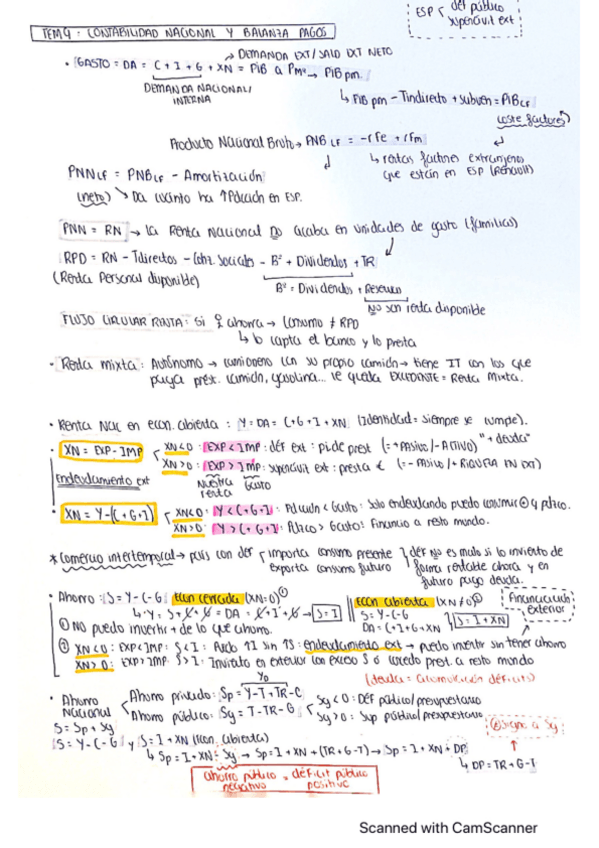 ESP < def público
superávit ext
TEMA 4: CONTABILIDAD NACIONAL Y BALANZA PAGOS
→ DEMANDA EXT/SALD EXT NETO
· GASTO = DA = C + I + G + XN = PIB a Pm → PIB pm.
DEMANDA NACIONAL/
INTERNA
↳ PIB pm - Tindirecto + subven = PIB cf
(coste factores)
Producto Nacional Bruto → PNB cf = -rfe + rfn
↳ rentas factores extranjeros
que están en ESP (Renault)
PNN cf = PNB cf - Amortización
(neto) ↘ Da cuánto ha ↑ Pducción en ESP.
PNN = RN → La Renta Nacional NO acaba en unidades de gasto (familias)
RPD = RN - Tdirectos - Cotiz. Sociales - Bº + Dividendos + TR
(Renta Personal disponible)
Bº = Dividendos + Reservas
NO son renta disponible
FLUJO CIRCULAR RENTA: Si se ahorra → Consumo ≠ RPD
↳ lo capta el banco y lo presta
· Renta mixta: Autónomo → camionero con su propio camión → tiene IT con los que
paga prest. camión, gasolina... le queda EXCEDENTE = Renta Mixta.
· Renta Nac en econ. abierta: Y = DA = C+G+I+XN (Identidad = siempre se cumple).
· XN = EXP - IMP
XN<0: EXP < IMP: déf ext: pide prest (= +PASIVO/-ACTIVO) "+ deuda"
XN>0: EXP > IMP: superávit ext: presta € (= -PASIVO/+RIQUEZA EN EXT)
Endeudamiento ext
nuestra renta
Gasto
· XN = Y-(C+G+I)
XN<0: Y < C+G+I: Pducción < Gasto: Solo endeudando puedo consumir
XN>0: Y > C+G+I: Pdcco > Gasto: Financio a resto mundo.
* Comercio intertemporal → país con def
importa consumo presente
exporta consumo futuro
déf NO es malo si lo invierto de
forma rentable ahora y en
futuro pago deuda.
· Ahorro: S = Y-C-G
Econ cerrada (XN=0) ①
↳ Y = S + C + G = DA = C + I + G → S = I
① NO puedo invertir + de lo que ahorro.
Econ abierta (XN≠0) ②
S = Y-C-G
DA = C+I+G+XN
S = I + XN
Financiación
exterior
② XN<0: EXP<IMP: S<I: Puedo ↑I sin ↑S: endeudamiento ext → puedo invertir sin tener ahorro
XN>0: EXP>IMP: S>I: Invierto en exterior con exceso S o concedo prest. a resto mundo
(deuda = acumulación déficits)
YD
· Ahorro
Nacional
Ahorro privado: Sp = Y-T+TR-C
Ahorro público: Sg = T-TR-G
Sg<0: DÉF público/presupuestario
Sg>0: Sup público/presupuestario
S = Sp + Sg
S = Y-C-G y S = I + XN (Econ. abierta)
↳ Sp = I + XN - Sg → Sp = I + XN + (TR+G-T) → Sp = I + XN + DP
signo a Sg
↳ DP = TR+G-T
ahorro público
negativo
=
déficit público
positivo
Scanned with CamScanner